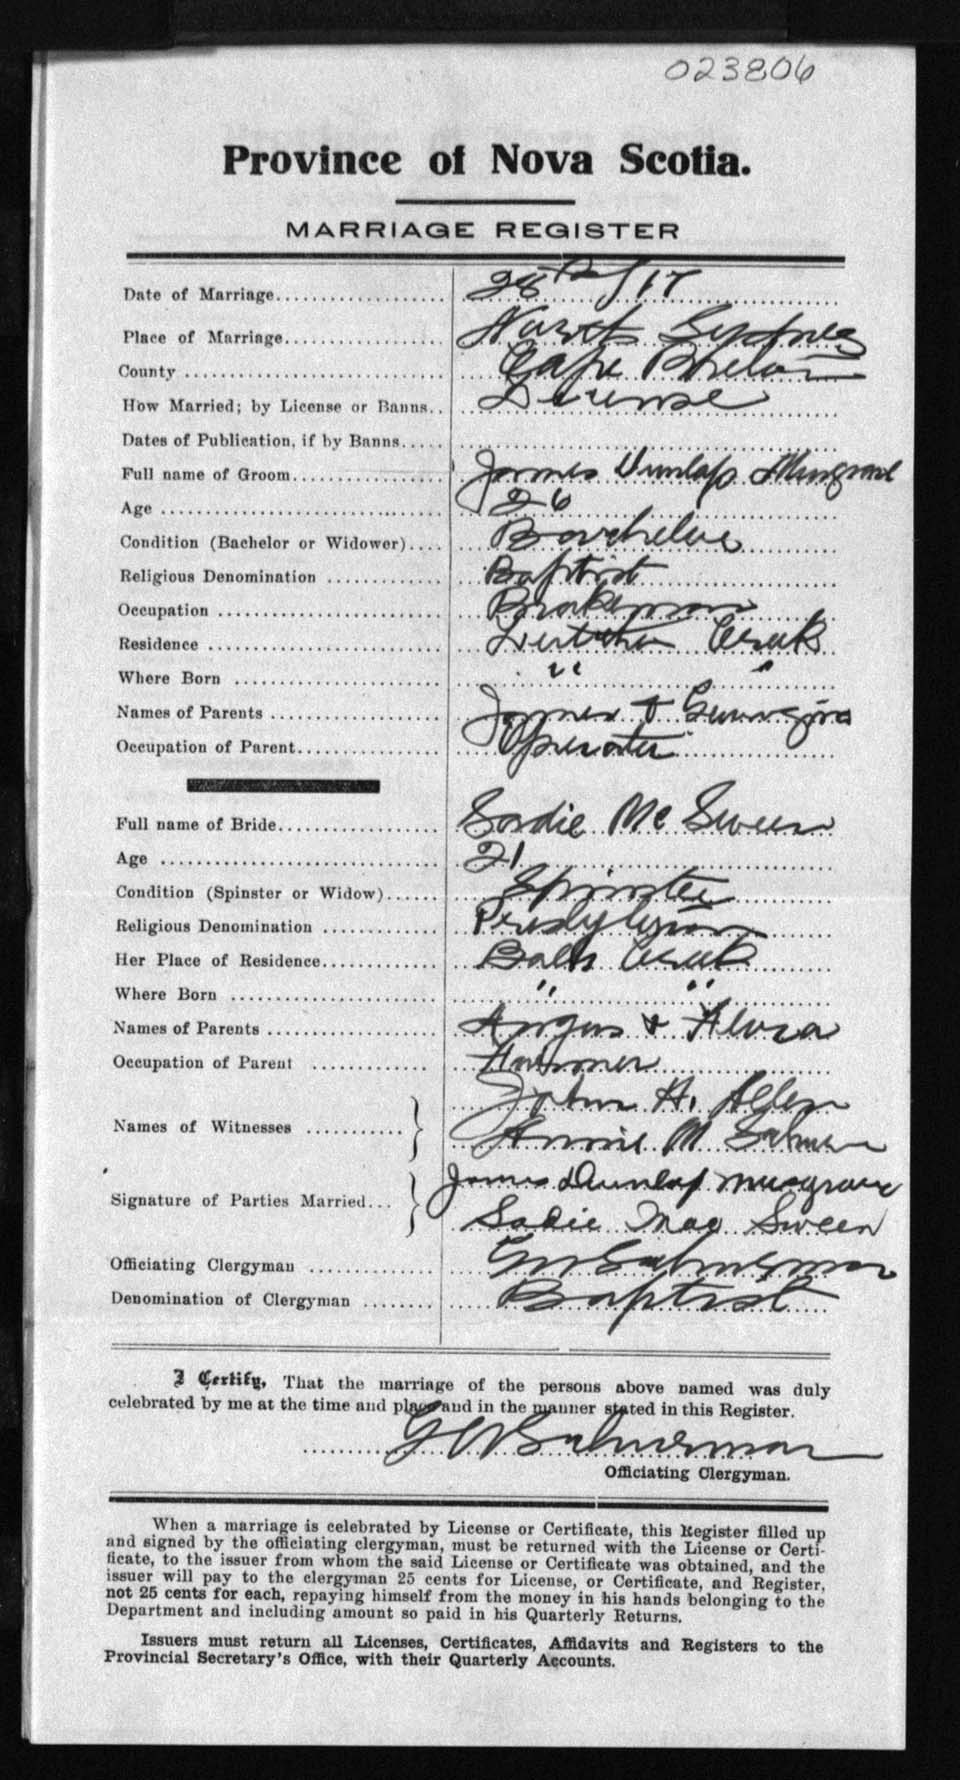 023806
Province of Nova Scotia.
MARRIAGE REGISTER
Date of Marriage 28th /17
Place of Marriage North Sydney
County Cape Breton
How Married; by License or Banns License
Dates of Publication, if by Banns
Full name of Groom James Dunlap Musgrave
Age 26
Condition (Bachelor or Widower) Bachelor
Religious Denomination Baptist
Occupation Brakeman
Residence Leitches Creek
Where Born " "
Names of Parents James & Georgina
Occupation of Parent Operator
Full name of Bride Sadie Mc Sween
Age 21
Condition (Spinster or Widow) Spinster
Religious Denomination Presbyterian
Her Place of Residence Balls Creek
Where Born " "
Names of Parents Angus &
Occupation of Parent Farmer
John A. Allen
Names of Witnesses
Annie M
James Dunlap Musgrave
Signature of Parties Married
Sadie Mac Sween
Officiating Clergyman
Denomination of Clergyman Baptist
I Certify, That the marriage of the persons above named was duly
celebrated by me at the time and place and in the manner stated in this Register.
Officiating Clergyman.
When a marriage is celebrated by License or Certificate, this Register filled up
and signed by the officiating clergyman, must be returned with the License or Certi-
ficate, to the issuer from whom the said License or Certificate was obtained, and the
issuer will pay to the clergyman 25 cents for License, or Certificate, and Register,
not 25 cents for each, repaying himself from the money in his hands belonging to the
Department and including amount so paid in his Quarterly Returns.
Issuers must return all Licenses, Certificates, Affidavits and Registers to the
Provincial Secretary's Office, with their Quarterly Accounts.